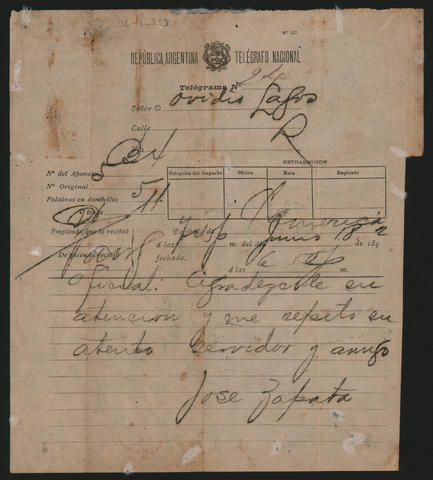 REPÚBLICA ARGENTINA TELÉGRAFO NACIONAL
Telégrama Nº 24
Señor D. Ovidio Lagos
Calle
R
RETRASMISION
Nº del Aparato
Nº Original
Palabras en domicilio
Categoría del despacho Oficina Hora Empleado
Empleado que lo recibió
Recibido de
á las m. del de 189
De quien lo recibió
fechado.
á las m.
Oficial. Agradezcole su
atencion y me repito su
atento servidor y amigo
Jose Zapata